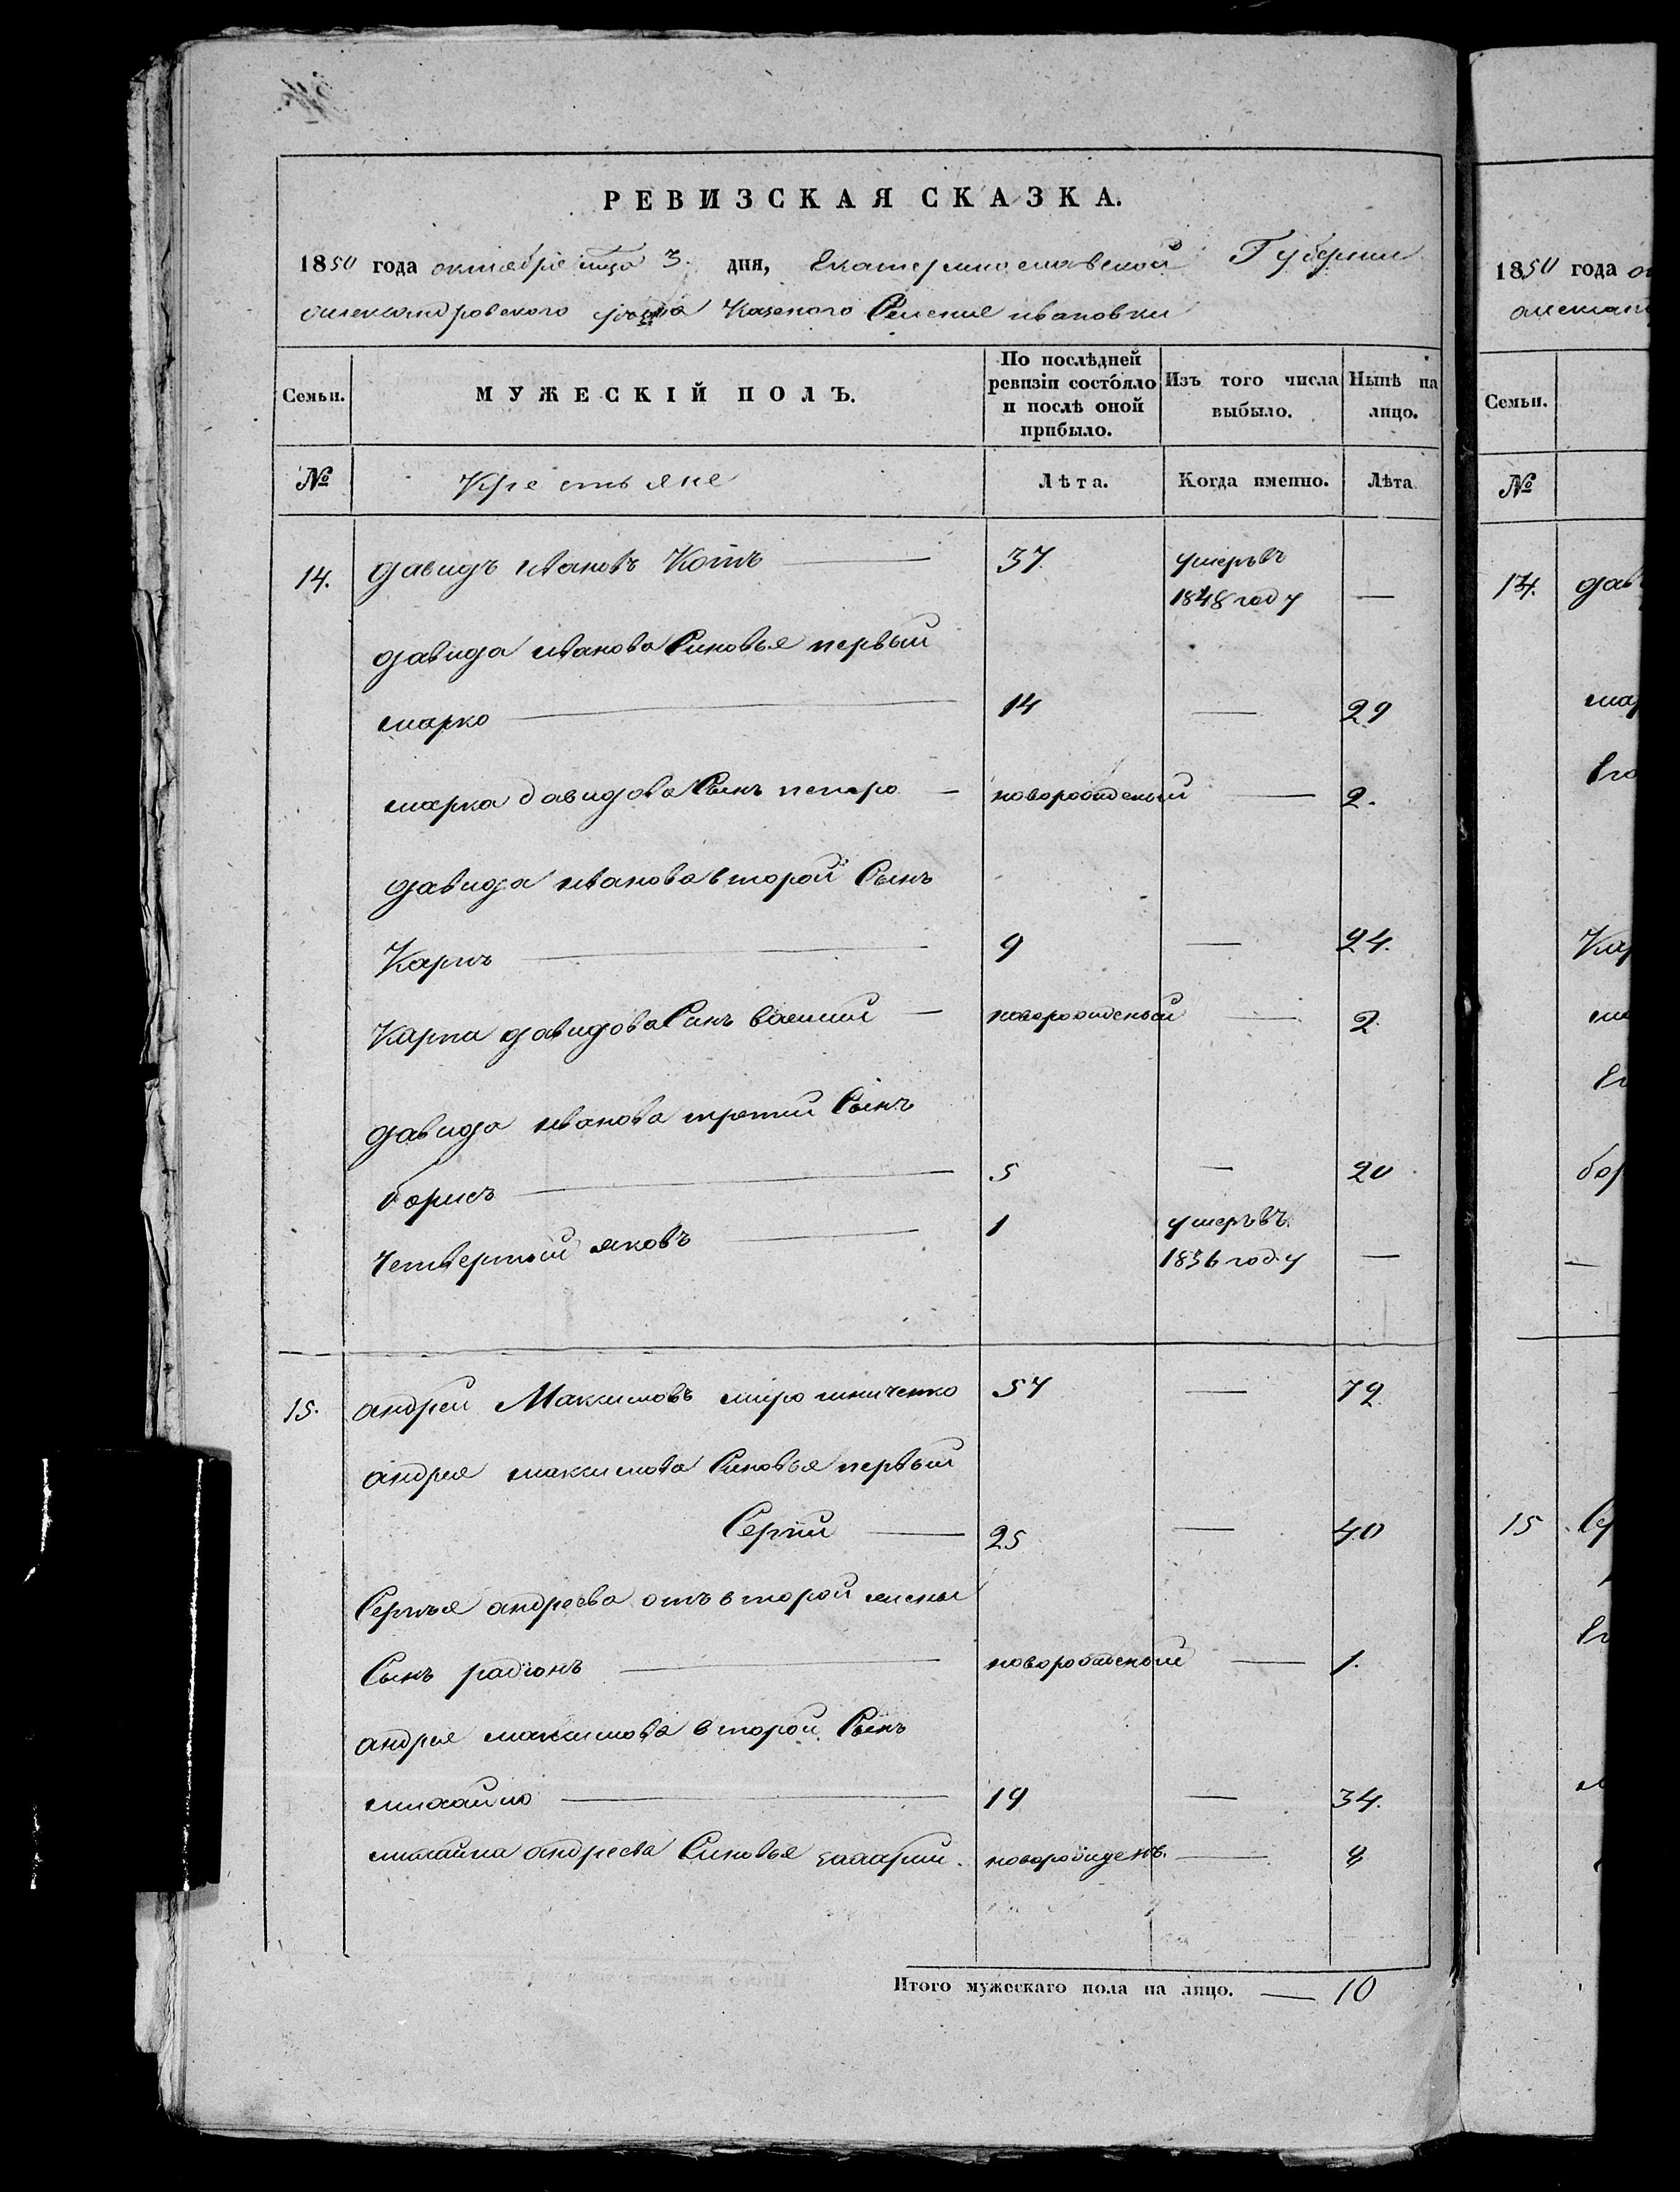 РЕВИЗСКАЯ СКАЗКА.
1850 года октября мца 3. дня, Екатеринославской Губернии
александровского уезда Казеного Селения ивановки
Семьи. МУЖЕСКІЙ ПОЛЪ. По послѣдней ревизіи состояло и послѣ оной прибыло. Изъ того числа выбыло. Нынѣ на лицо.
№ Крестьяне Лѣта. Когда именно. Лѣта
14. давидъ ивановъ Котъ 37. умеръ въ
1848 году —
давида иванова Синовья первый
марко — 14 — 29
марка давидова Сынъ петро — новорожденый — 2.
давида иванова второй Сынъ
Карпъ — 9 — 24.
Карпа давидова Синъ васили — новорожденый — 2.
давида иванова третий Сынъ
борисъ — 5 — 20
четвертый яковъ — 1 умеръ въ
1836 году —
15. андрей Максимовъ мірошниченко 57 — 72.
андрея максимова Синовья первый
Сергий — 25 — 40
Сергѣя андреева отъ второй жены
Сынъ радионъ — новорожденый — 1.
андрея максимова второй Сынъ
михайло — 19 — 34.
михайла андреева Синовья захарий. новорожденъ. —
Итого мужескаго пола на лицо. — 10
1850 года
Семьи.
№
14.
15